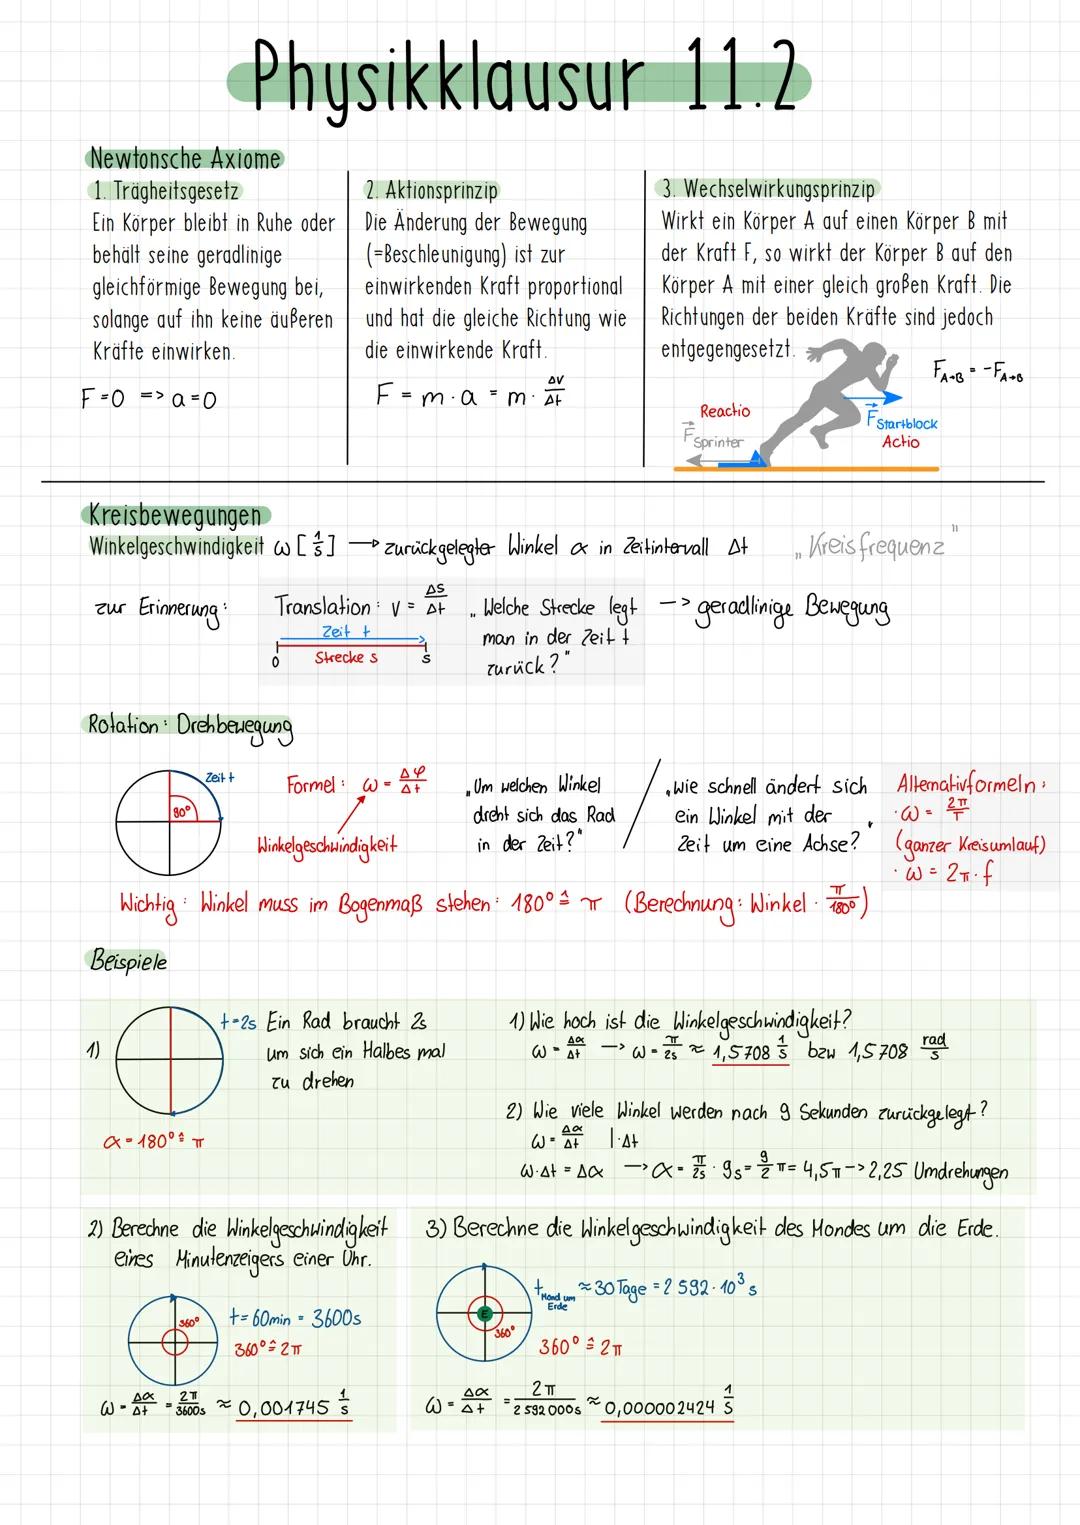 Physikklausur 11.2
Newtonsche Axiome
1. Trägheitsgesetz
Ein Körper bleibt in Ruhe oder
behält seine geradlinige
gleichförmige Bewegung bei,
solange auf ihn keine äußeren
Kräfte einwirken.
F=0 => a=0
2. Aktionsprinzip
Die Änderung der Bewegung
(=Beschleunigung) ist zur
einwirkenden Kraft proportional
und hat die gleiche Richtung wie
die einwirkende Kraft.
F = m · a = m · Δv/Δt
3. Wechselwirkungsprinzip
Wirkt ein Körper A auf einen Körper B mit
der Kraft F, so wirkt der Körper B auf den
Körper A mit einer gleich großen Kraft. Die
Richtungen der beiden Kräfte sind jedoch
entgegengesetzt.
F A→B = -F A→B
Reactio
F Sprinter
F Startblock
Actio
Kreisbewegungen
Winkelgeschwindigkeit ω [1/s] → zurückgelegter Winkel α in Zeitintervall Δt „Kreisfrequenz"
zur Erinnerung:
Translation: v = Δs/Δt
Zeit t
0 Strecke s s
„Welche Strecke legt
man in der Zeit t
zurück?"
-> geradlinige Bewegung
Rotation: Drehbewegung
Zeit t
90°
Formel: ω = Δφ/Δt
Winkelgeschwindigkeit
„Um welchen Winkel
dreht sich das Rad
in der Zeit?"
„wie schnell ändert sich
ein Winkel mit der
Zeit um eine Achse?"
Alternativformeln:
· ω = 2π/T
(ganzer Kreisumlauf)
· ω = 2π·f
Wichtig: Winkel muss im Bogenmaß stehen: 180° ≙ π (Berechnung: Winkel · π/180°)
Beispiele
1)
t=2s
Ein Rad braucht 2s
um sich ein Halbes mal
zu drehen
α=180° ≙ π
1) Wie hoch ist die Winkelgeschwindigkeit?
ω = Δα/Δt → ω = π/2s ≈ 1,5708 1/s bzw 1,5708 rad/s
2) Wie viele Winkel werden nach 9 Sekunden zurückgelegt?
ω = Δα/Δt |·Δt
ω·Δt = Δα → α = π/2s · 9s = 9/2 π = 4,5π -> 2,25 Umdrehungen
2) Berechne die Winkelgeschwindigkeit
eines Minutenzeigers einer Uhr.
360°
t= 60min = 3600s
360° ≙ 2π
ω = Δα/Δt = 2π/3600s ≈ 0,001745 1/s
3) Berechne die Winkelgeschwindigkeit des Mondes um die Erde.
E
360°
t Mond um Erde ≈ 30 Tage = 2 592·10³ s
360° ≙ 2π
ω = Δα/Δt = 2π/2 592 000s ≈ 0,000002424 1/s